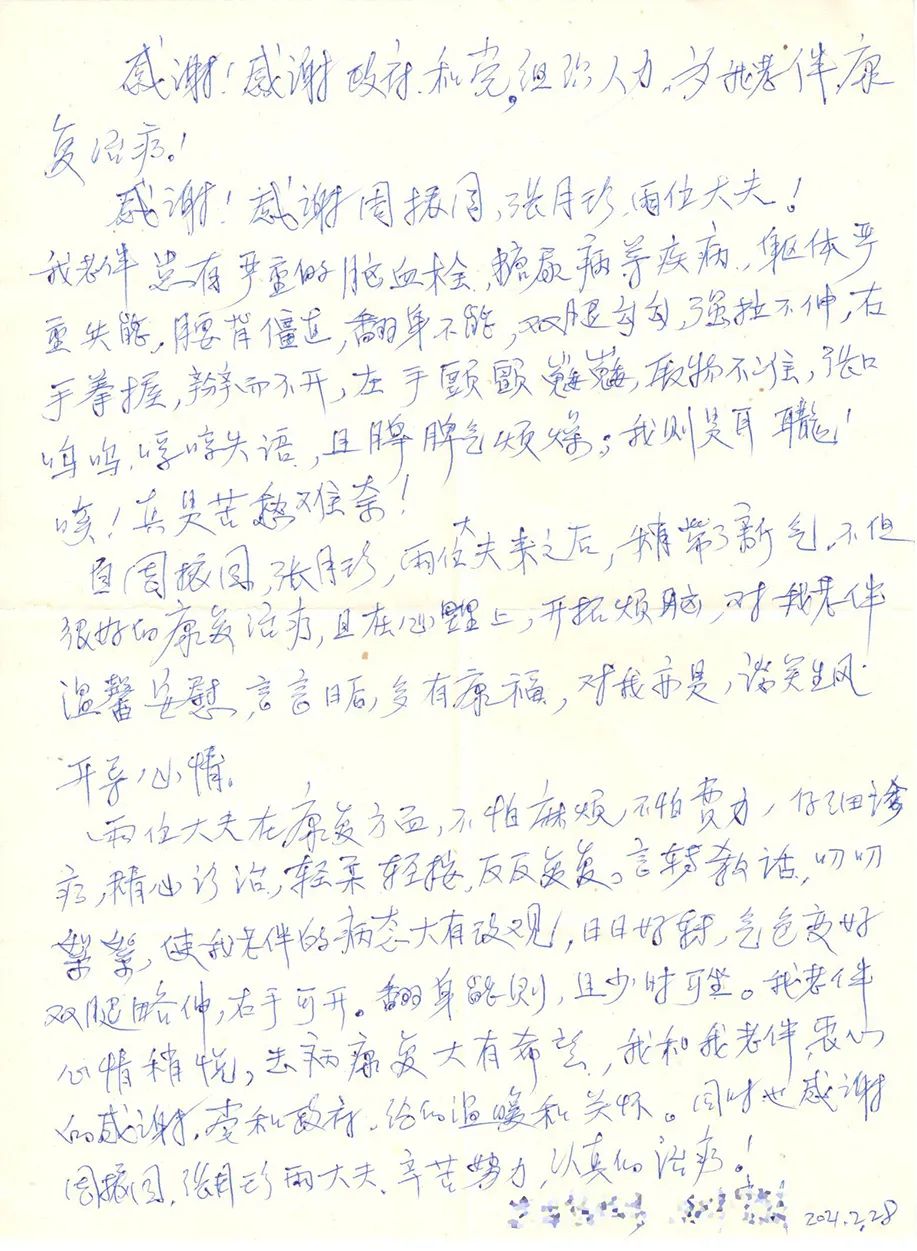 感谢！感谢政府和党，组织人力，为我老伴康
复治疗！
感谢！感谢周振国，张月珍，两位大夫！
我老伴患有严重的脑血栓、糖尿病等疾病，躯体严
重失能，腰背僵直，翻身不能，双腿勾勾，强拉不伸，右
手拳握，掰而不开，左手颤颤巍巍，取物不住，张口
呜呜，哼哼失语，且脾气烦燥；我则是耳聋！
咳！真是苦愁难奈！
自周振国，张月珍，两位大夫来之后，带了新气。不但
很好的康复治疗，且在心理上，开拓烦脑，对我老伴
温馨安慰，言言日后，多有康福，对我亦是，谈笑生风
开导心情。
两位大夫在康复方面，不怕麻烦，不怕费力，仔细诊
疗，精心诊治，轻柔轻按，反反复复。言转教话，叨叨
絮絮，使我老伴的病态大有改观，日日好转，气色变好
双腿略伸，右手可开。翻身能侧，且少时可坐。我老伴
心情稍悦，去病康复大有希望，我和我老伴，衷心
的感谢，党和政府，给的温暖和关怀。同时也感谢
周振国，张月珍两大夫，辛苦努力，认真的治疗！
2021.2.28